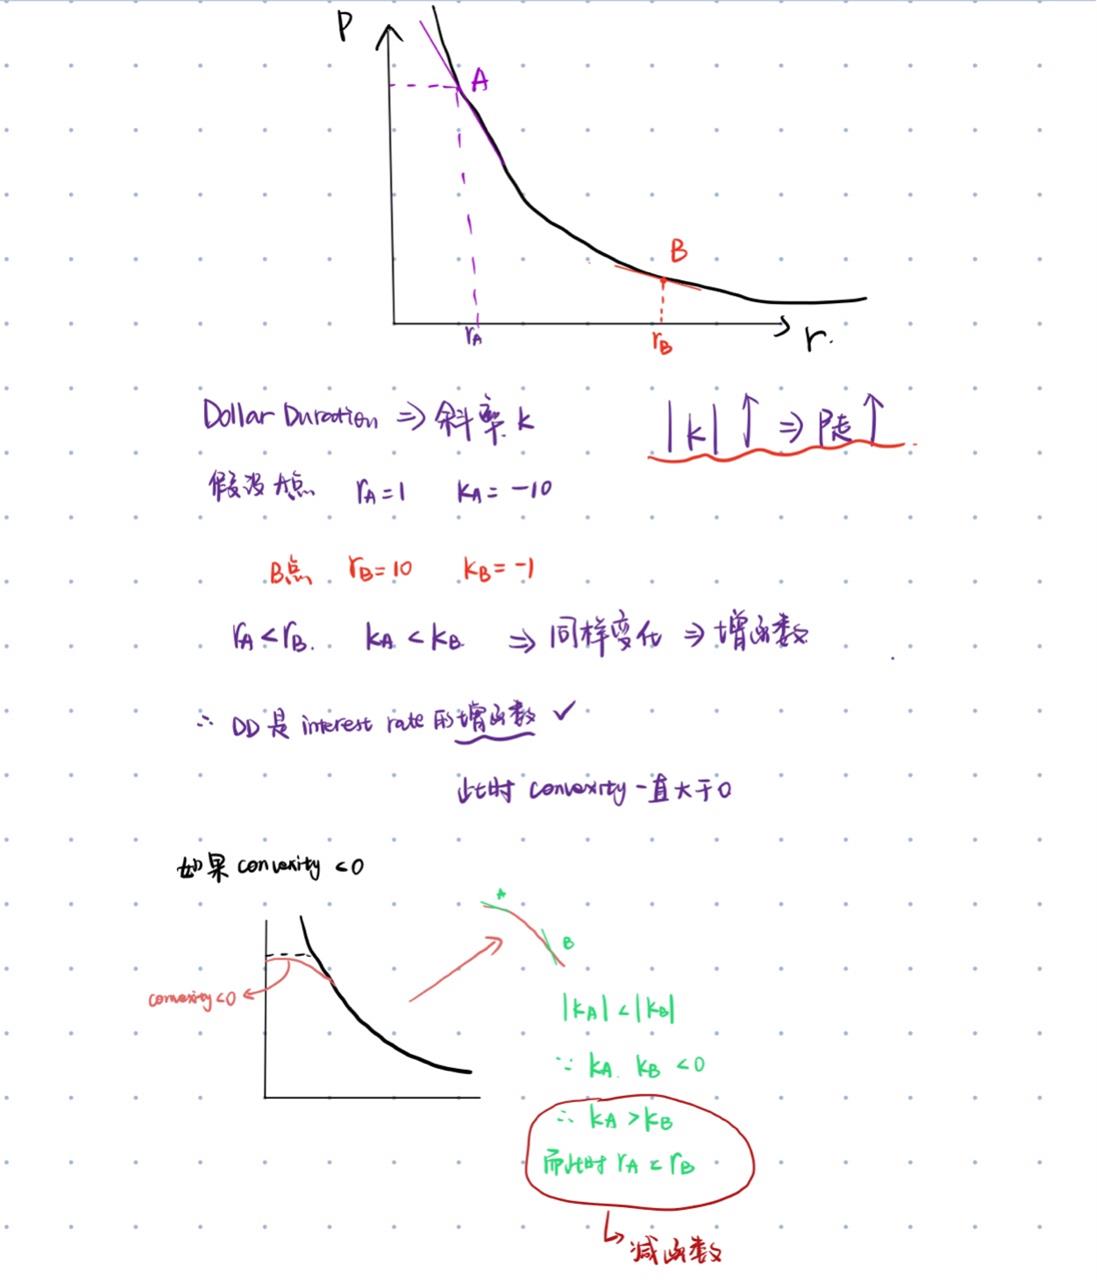 P
A
B
rA
rB
r.
Dollar Duration ⇒ 斜率 k
|k| ↑ ⇒ 陡 ↑
假设A点 rA=1 kA=-10
B点 rB=10 kB=-1
rA<rB. kA<kB ⇒ 同样变化 ⇒ 增函数
∴ DD 是 interest rate 的增函数 ✓
此时 convexity 一直大于0
如果 convexity <0
A
B
convexity<0
|kA|<|kB|
∵ kA. kB <0
∴ kA >kB
而此时 rA < rB
减函数